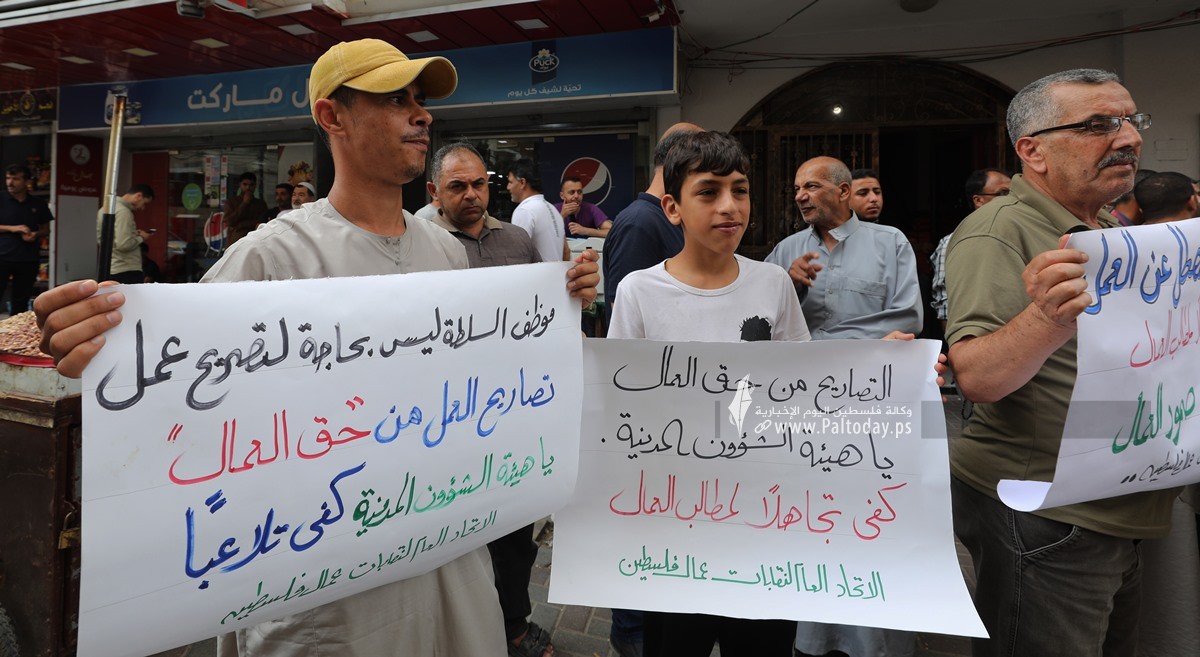 ل ماركت
Puck
تحية لشيف كل يوم
موظف السلطة ليس بحاجة لتصريح عمل
تصاريح العمل من "حق العمال"
يا هيئة الشؤون المدنية كفى تلاعباً
الاتحاد العام لنقابات عمال فلسطين
التصاريح من حق العمال
يا هيئة الشؤون المدنية .
كفى تجاهلاً لمطالب العمال
الاتحاد العام لنقابات عمال فلسطين
عن العمل
العمال
العمال
وكالة فلسطين اليوم الإخبارية
www.Paltoday.ps